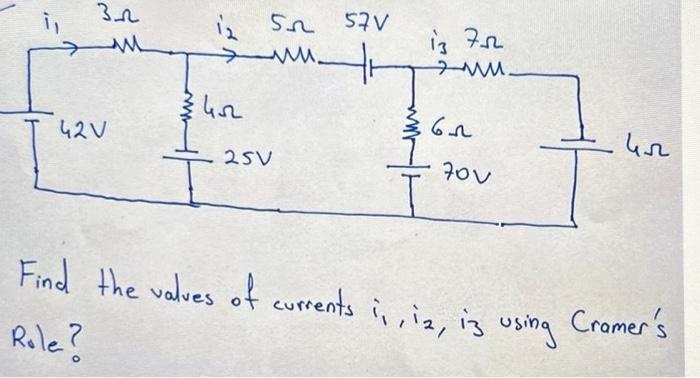 i₁ 3Ω i₂ 5Ω 57V i₃ 7Ω
42V 4Ω 25V 6Ω 70V 4Ω
Find the values of currents i₁, i₂, i3 using Cramer's
Role?